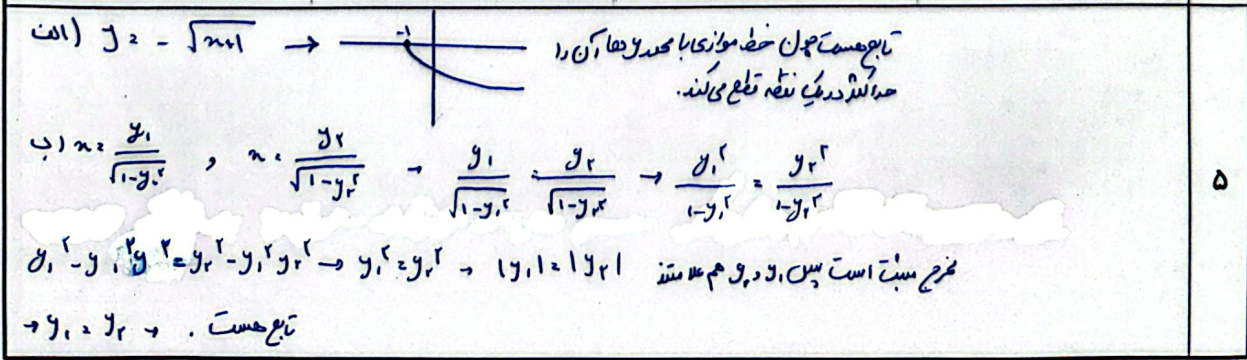 الف) y = -√x+1 → -1 تابع هست چون خط موازی با محور yها آن را
حداکثر در یک نقطه قطع می‌کند.
ب) x = y₁/√1-y₁² , x = y₂/√1-y₂² → y₁/√1-y₁² = y₂/√1-y₂² → y₁²/1-y₁² = y₂²/1-y₂²
۵
y₁² - y₁²y₂² = y₂² - y₁²y₂² → y₁² = y₂² → |y₁| = |y₂| مخرج مثبت است پس y₁ و y₂ هم علامتند
→ y₁ = y₂ → تابع هست.